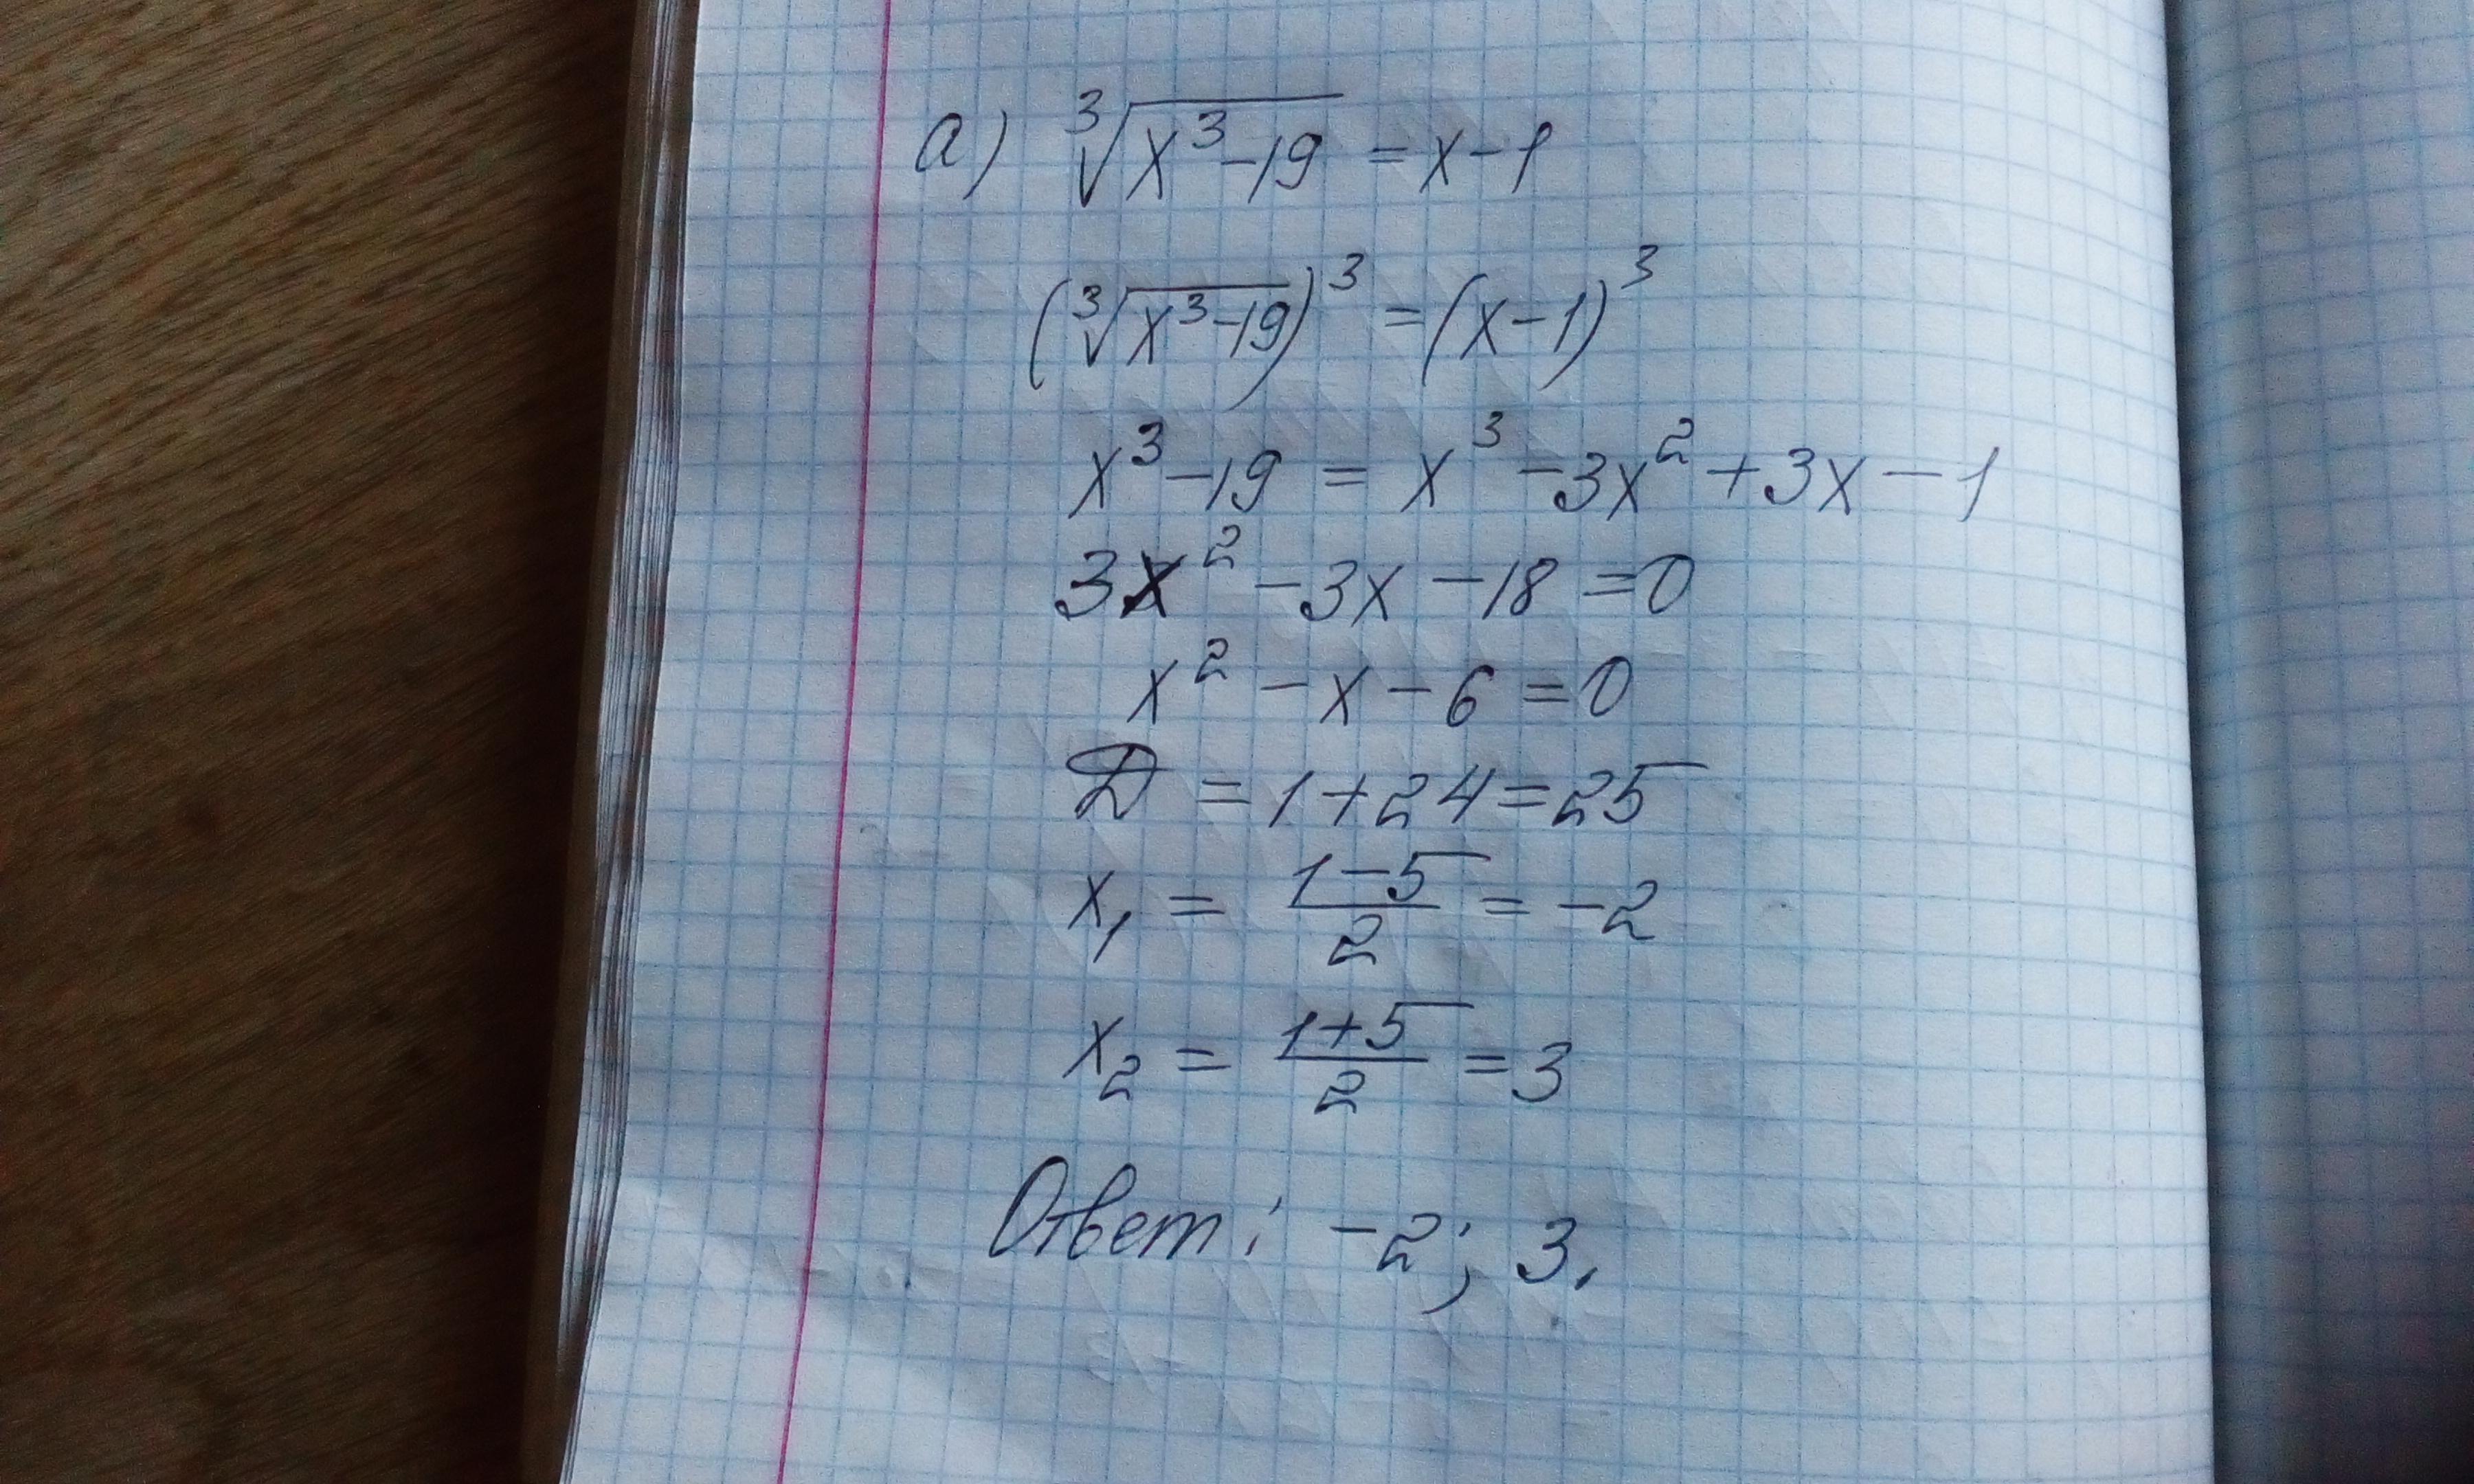 а) ∛(x³-19) = x-1
(∛(x³-19))³ = (x-1)³
x³-19 = x³-3x²+3x-1
3x²-3x-18=0
x²-x-6=0
D=1+24=25
x₁ = (1-5)/2 = -2
x₂ = (1+5)/2 = 3
Ответ: -2; 3.